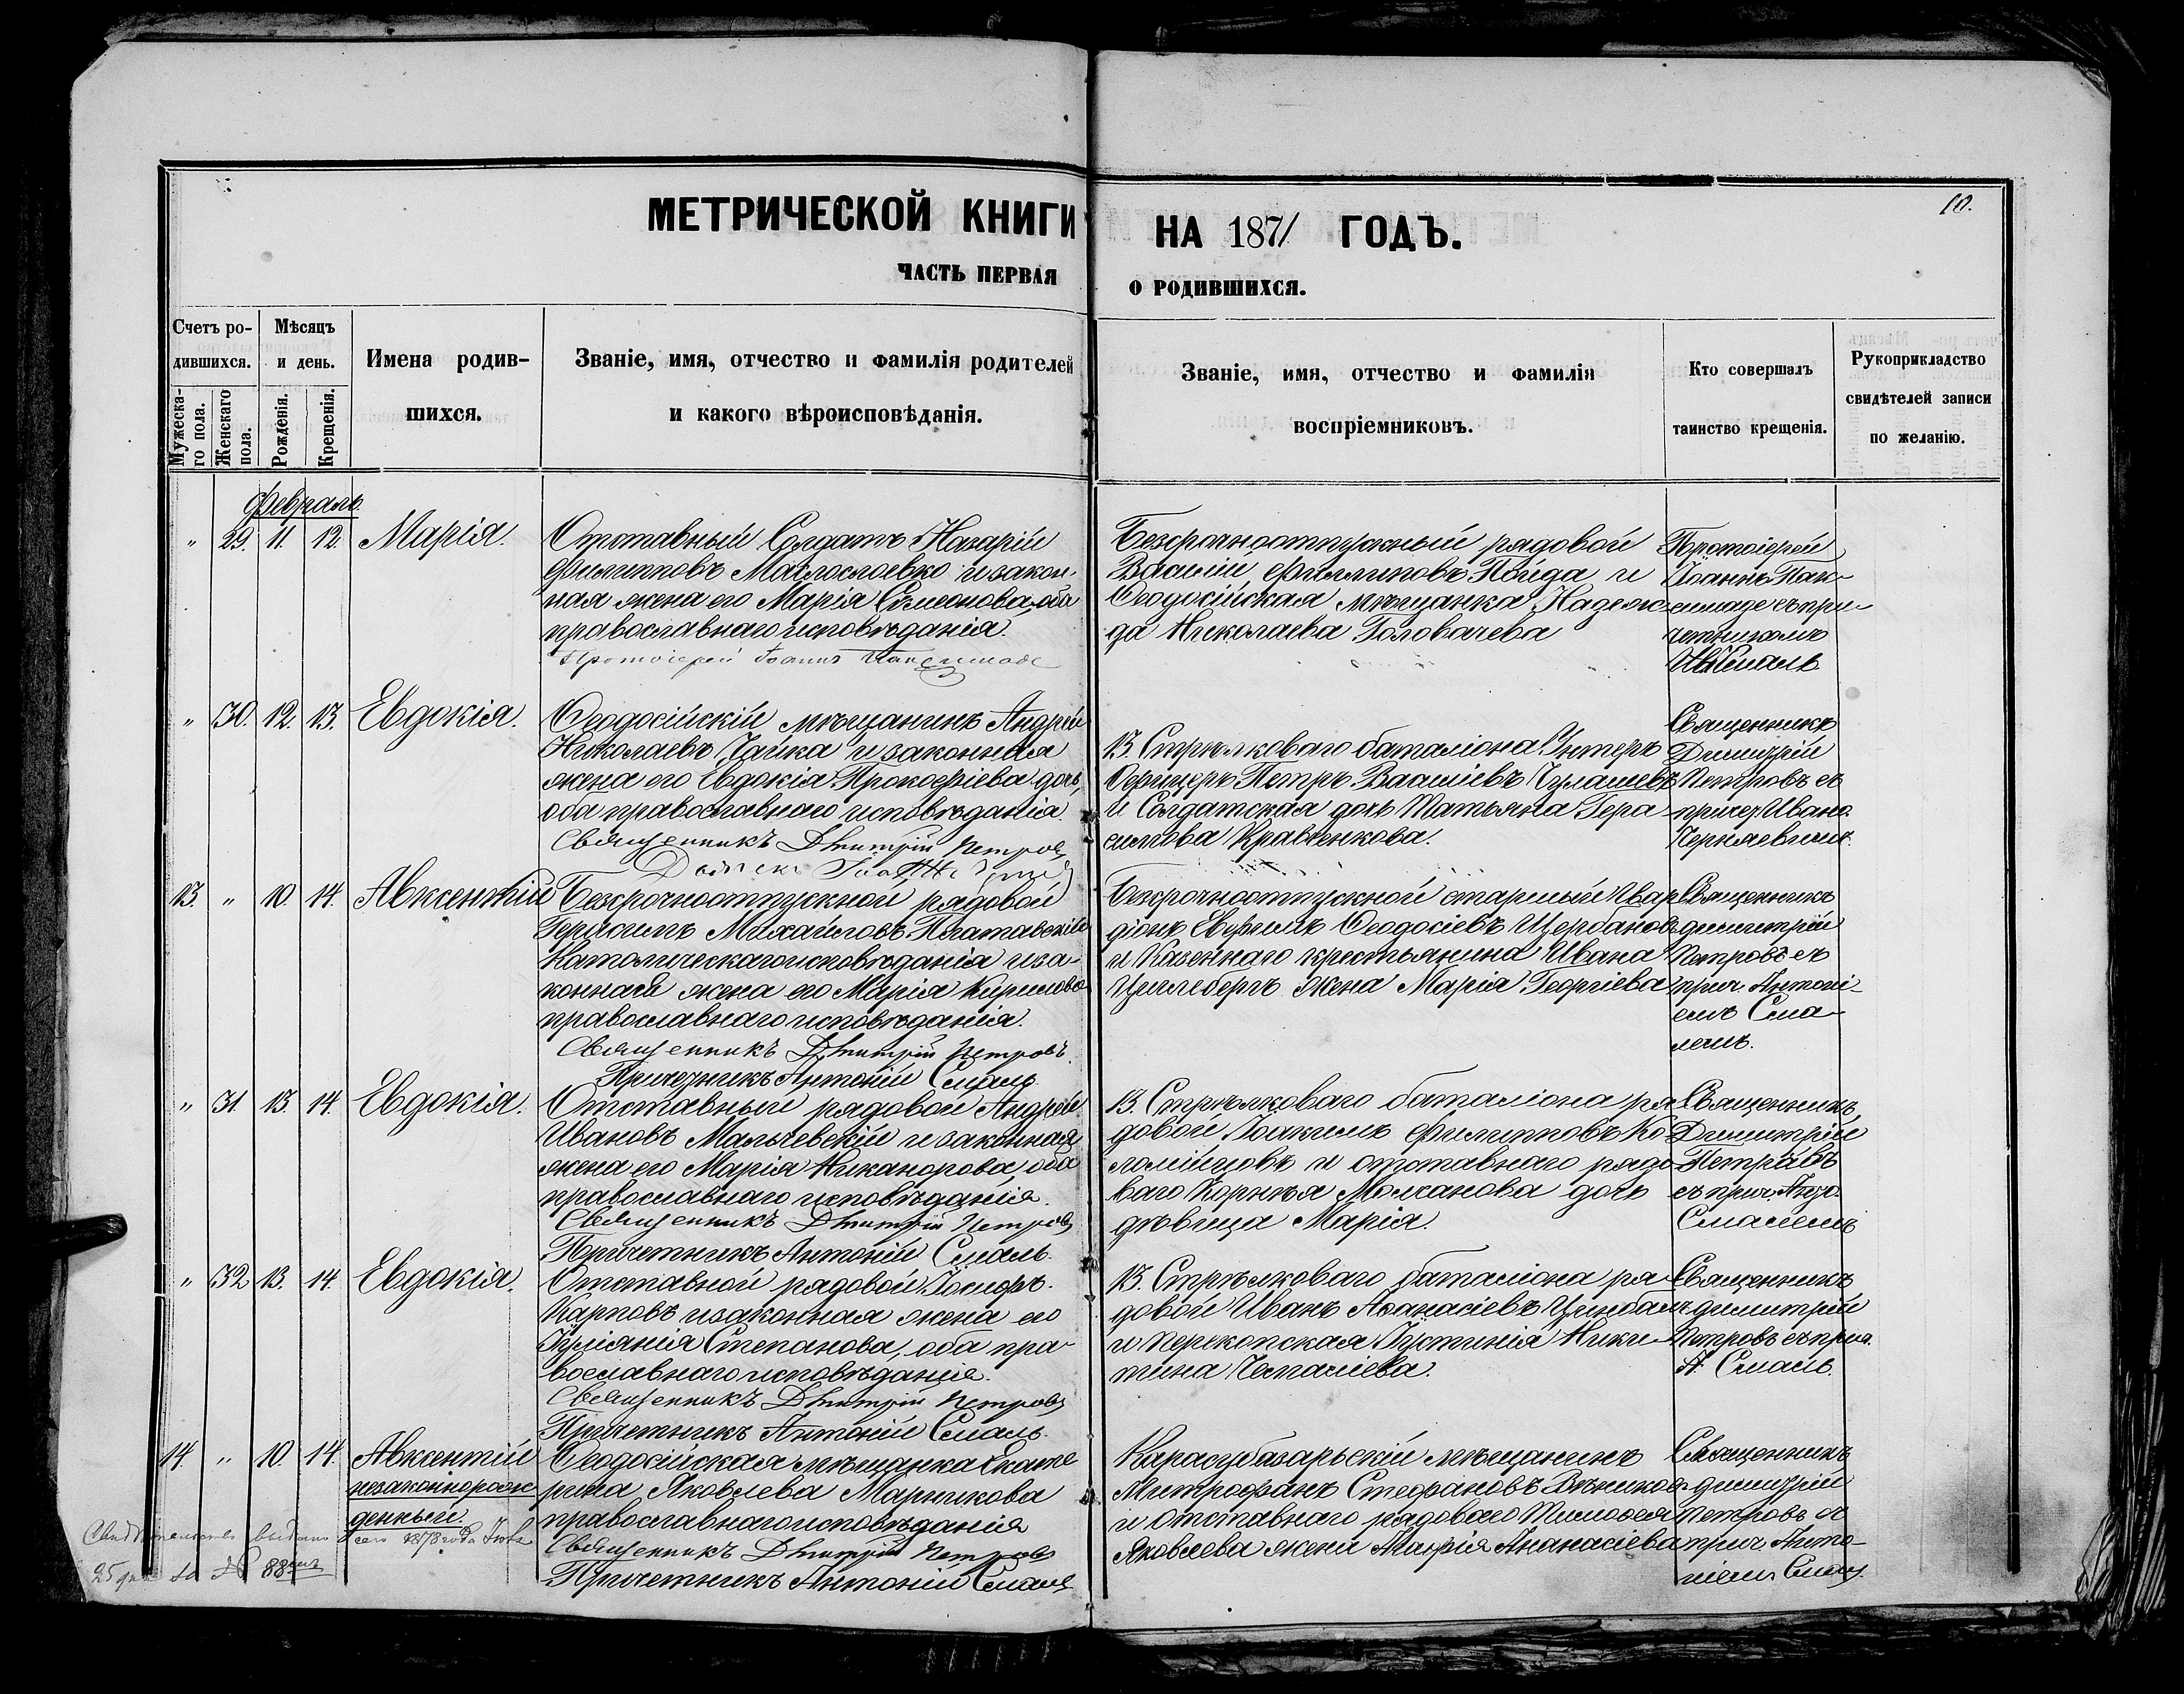 10.
МЕТРИЧЕСКОЙ КНИГИ НА 1871 ГОДЪ.
ЧАСТЬ ПЕРВАЯ О РОДИВШИХСЯ.
Счетъ ро-
дившихся.
Мужеска-
го пола.
Женскаго
пола.
Мѣсяцъ
и день.
Рожденія.
Крещенія.
Имена родив-
шихся.
Званіе, имя, отчество и фамилія родителей
и какого вѣроисповѣданія.
Званіе, имя, отчество и фамилія
воспріемниковъ.
Кто совершалъ
таинство крещенія.
Рукоприкладство
свидѣтелей записи
по желанію.
Февраль.
" 29. 11. 12. Марія.
Отставный Солдатъ Назарій
Филипповъ и закон-
ная жена его Марія Семеонова, оба
православнаго исповѣданія.
Протоіерей Іоаннъ
Безсрочноотпускный рядовой
Василій Филлиповъ Пойда и
Ѳеодосійская мѣщанка Надеж-
да Николаева Головачева
Протоіерей
Іоаннъ
съ при-
четникомъ
" 30. 12. 13. Евдокія.
Ѳеодосійскій мѣщанинъ Андрей
Николаевъ Чайка и законная
жена его Евдокія Прокофіева дочь,
оба православнаго исповѣданія
Священникъ Дмитрій Петровъ
13. Стрѣлковаго баталіона Унтеръ
Офицеръ Петръ Василіевъ
и Солдатская дочь Татьяна Гера-
симова Кравченкова.
Священникъ
Димитрій
Петровъ съ
причет. Ивано.
13. " 10. 14. Авксентій
Безсрочноотпускной рядовой
Герасимъ Михайловъ
Католическаго исповѣданія и за-
конная жена его Марія Кирилова
православнаго исповѣданія.
Священникъ Дмитрій Петровъ
Причетникъ Антоній Смаль.
Безсрочноотпускной старшый Гвар-
діонъ Евфимъ Ѳеодосіевъ Щербаковъ
и Казеннаго крестьянина Ивана
Циглебергъ жена Марія Георгіева
Священникъ
Димитрій
Петровъ съ
прич. Антоні-
емъ Сма-
лемъ.
" 31. 13. 14. Евдокія.
Отставный рядовой Андрей
Ивановъ Мальчевскій и законная
жена его Марія Никанорова, оба
православнаго исповѣданія.
Священникъ Дмитрій Петровъ
Причетникъ Антоній Смаль.
13. Стрѣлковаго баталіона ря-
довой Іоакимъ Филипповъ Ко-
ломійцовъ и отставнаго рядо-
ваго Корнѣя Молчанова дочь
дѣвица Марія.
Священникъ
Димитрій
Петровъ
съ прич. Анто.
Смалемъ
" 32. 13. 14. Евдокія.
Отставной рядовой Іосифъ
Карповъ и законная жена его
Іуліанія Степанова, оба пра-
вославнаго исповѣданія.
Священникъ Дмитрій Петровъ
Причетникъ Антоній Смаль.
13. Стрѣлковаго баталіона ря-
довой Иванъ Аѳанасіевъ Цинбалъ
и Перекопская Іустинія Ники-
тина
Священникъ
Димитрій
Петровъ съ прич.
А. Смаль.
14. " 10. 14. Авксентій
незаконнорож-
денный.
Ѳеодосійская мѣщанка Екате-
рина Яковлева Марникова
православнаго исповѣданія
Священникъ Дмитрій Петровъ
Причетникъ Антоній Смаль
Карасубазарьскій мѣщанинъ
Митрофанъ Стефановъ Вѣниковъ
и отставнаго рядоваго Тимоѳея
Яковлева жена Марія Ананасіева
Священникъ
Димитрій
Петровъ съ
прич. Анто-
ніемъ
Свидѣтельство выдано сего 1878 года
25 дня за № 88